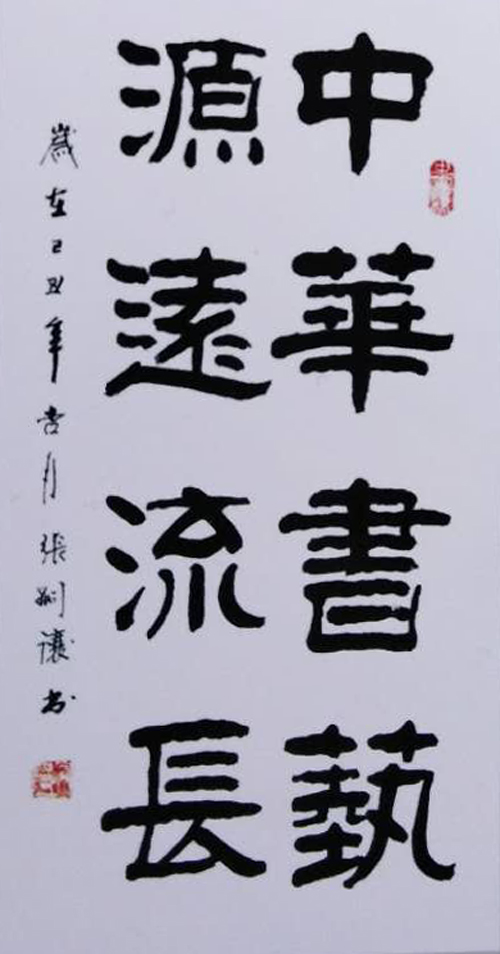 中華書藝
源遠流長
歲在己丑年杏月張剛讓书